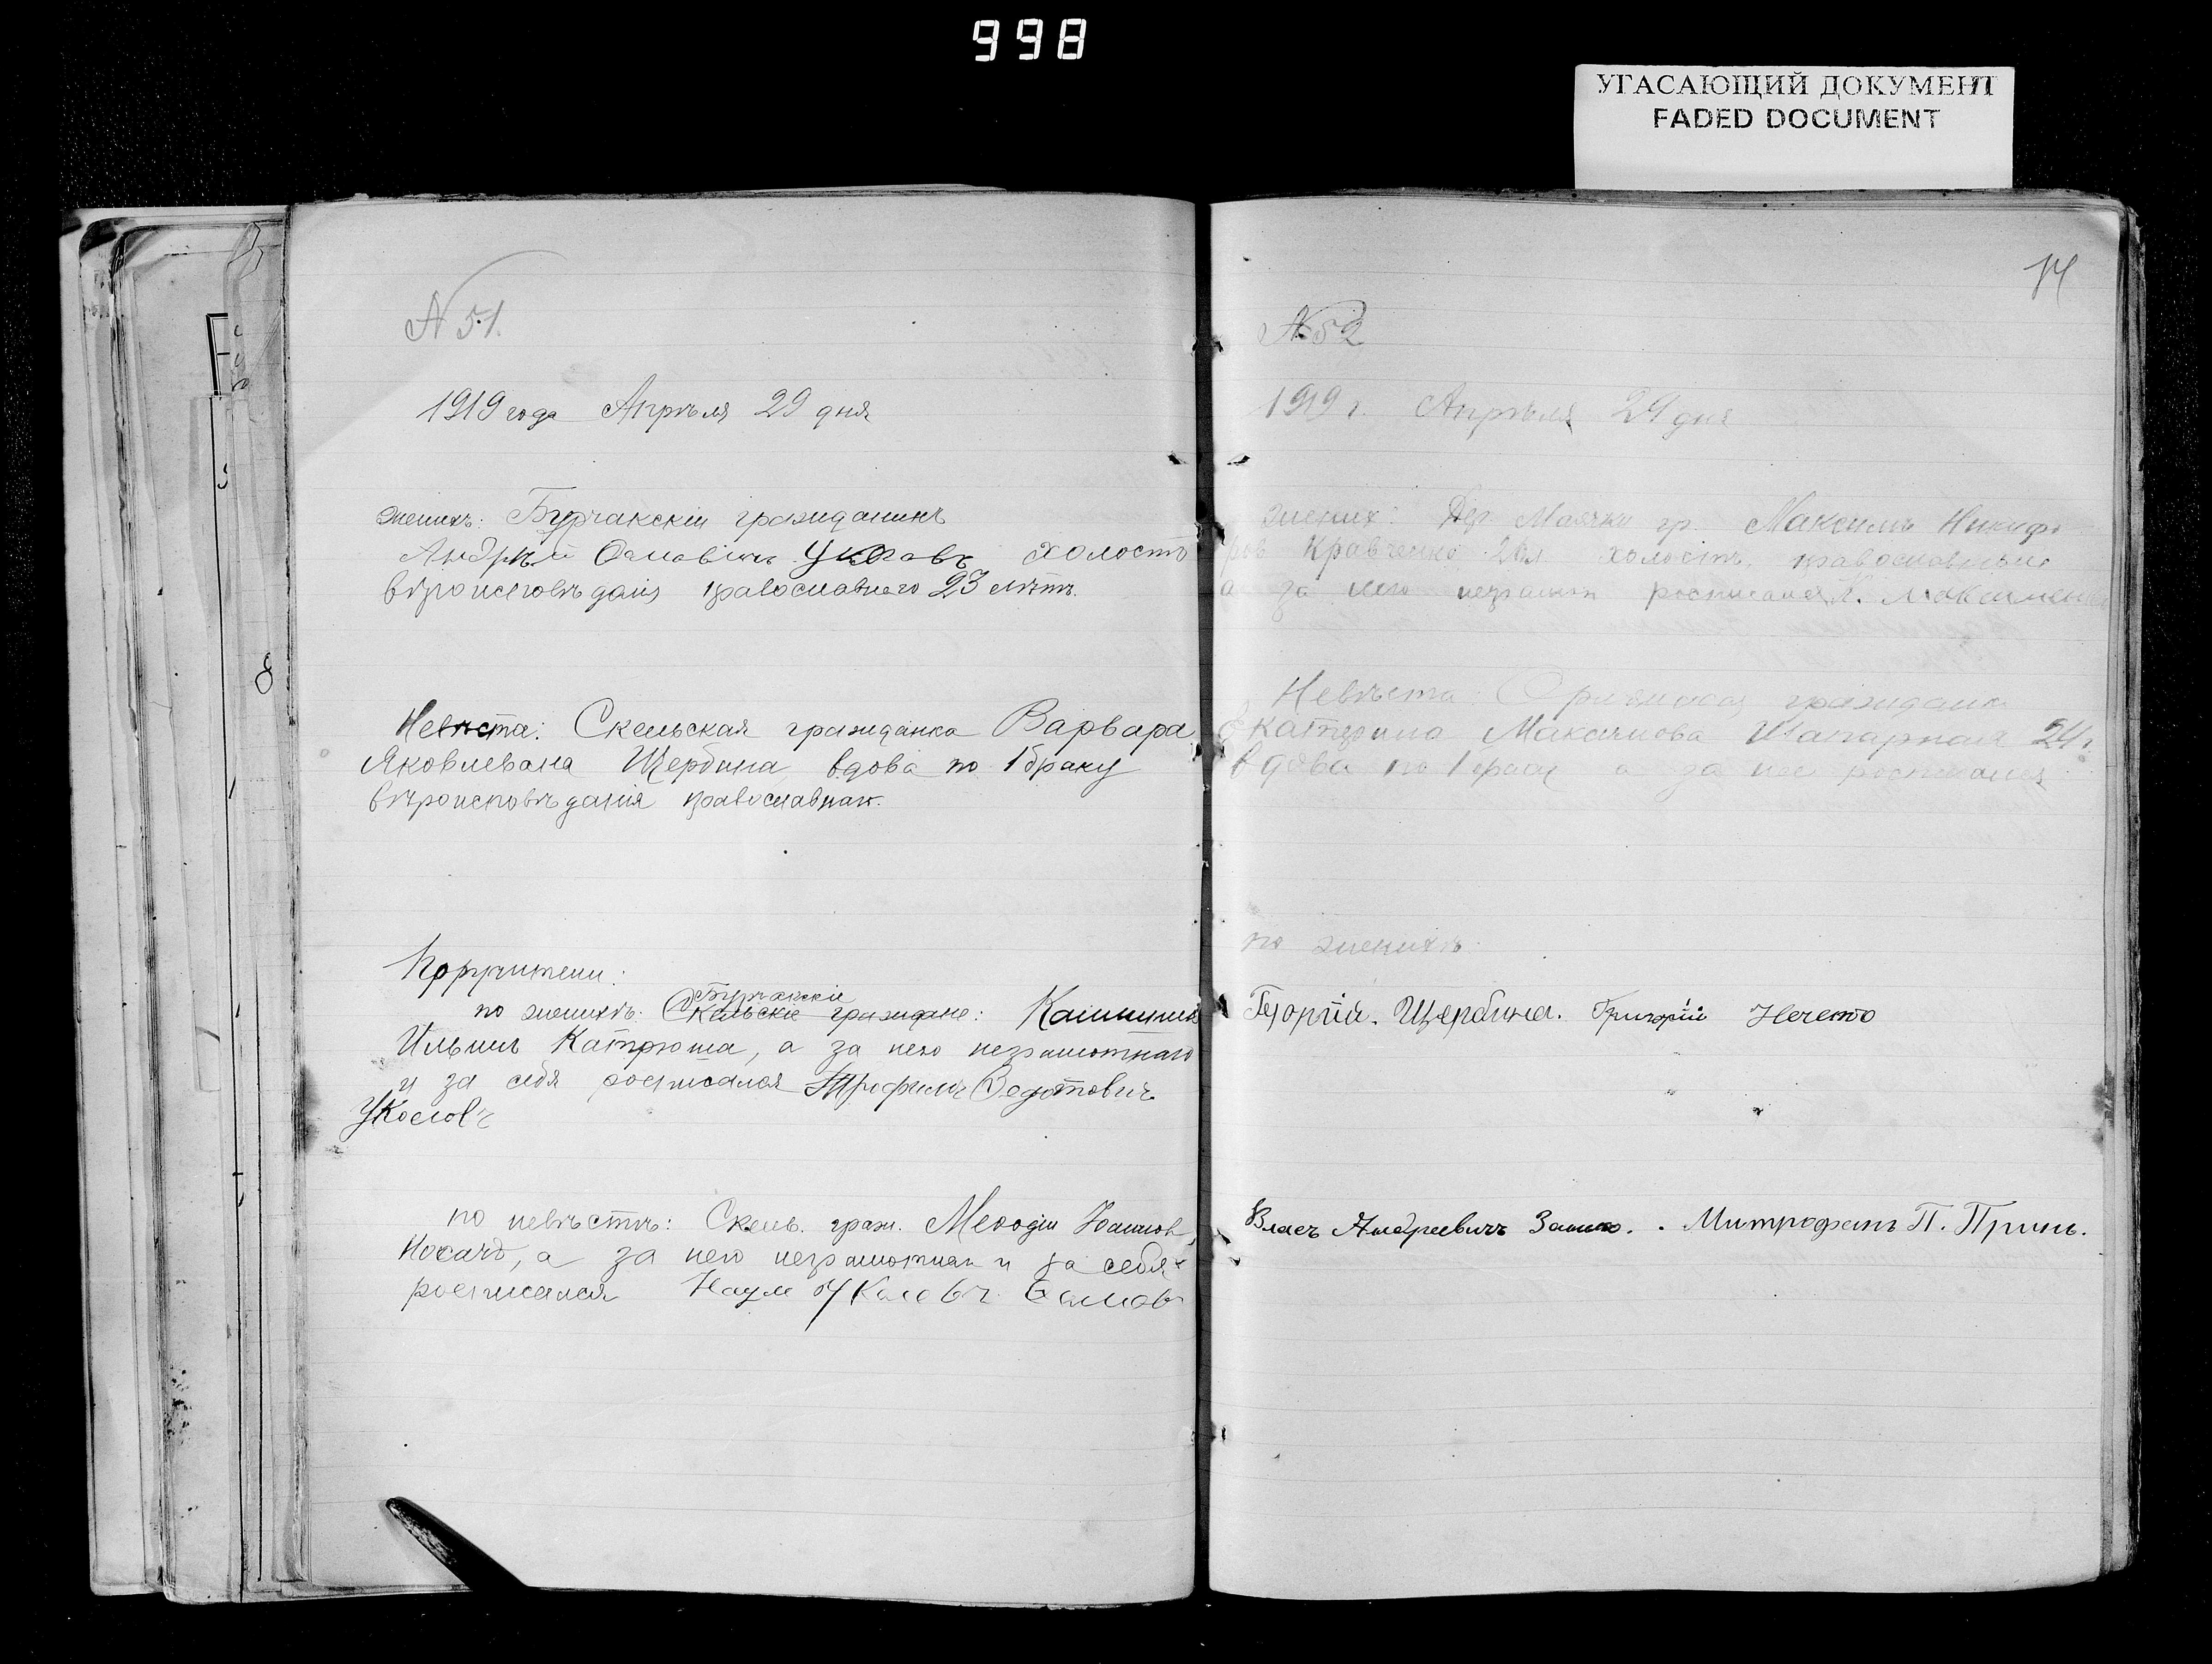 998
УГАСАЮЩИЙ ДОКУМЕНТ
FADED DOCUMENT
N 51.
1919 года Апрѣля 29 дня
женихъ: Бурчакскій гражданинъ
Андрѣй холостъ
вѣроисповѣданія православнаго 23 лѣтъ.
Невѣста: Скельская гражданка Варвара
Яковлевна Щербина вдова по 1 браку
вѣроисповѣданія православная.
Поручители:
Бурчакскіе
по женихѣ: Скельскіе граждане:
Ильинъ Катрюша, а за него неграмотнаго
и за себя росписался Трофимъ Федотовичъ
Укосовъ
по невѣстѣ: Скельс. граж. Меѳодій
Косачъ, а за него неграмотнаго и за себя
росписался Наум
14
N 52
1919 г. Апрѣля 29 дня
женихъ: Дер. Маячки гр. Максимъ Никифо
ровъ Кравченко холостъ православный
а за него неграмотн росписался К. Максименко
Невѣста: гражданка
Екатерина Максимова Шапарная 24 г.
вдова по 1 браку а за нее росписался
по женихѣ:
Георгій. Щербина. Григорій
Власъ Андреевичъ Митрофанъ П. Принь.
8